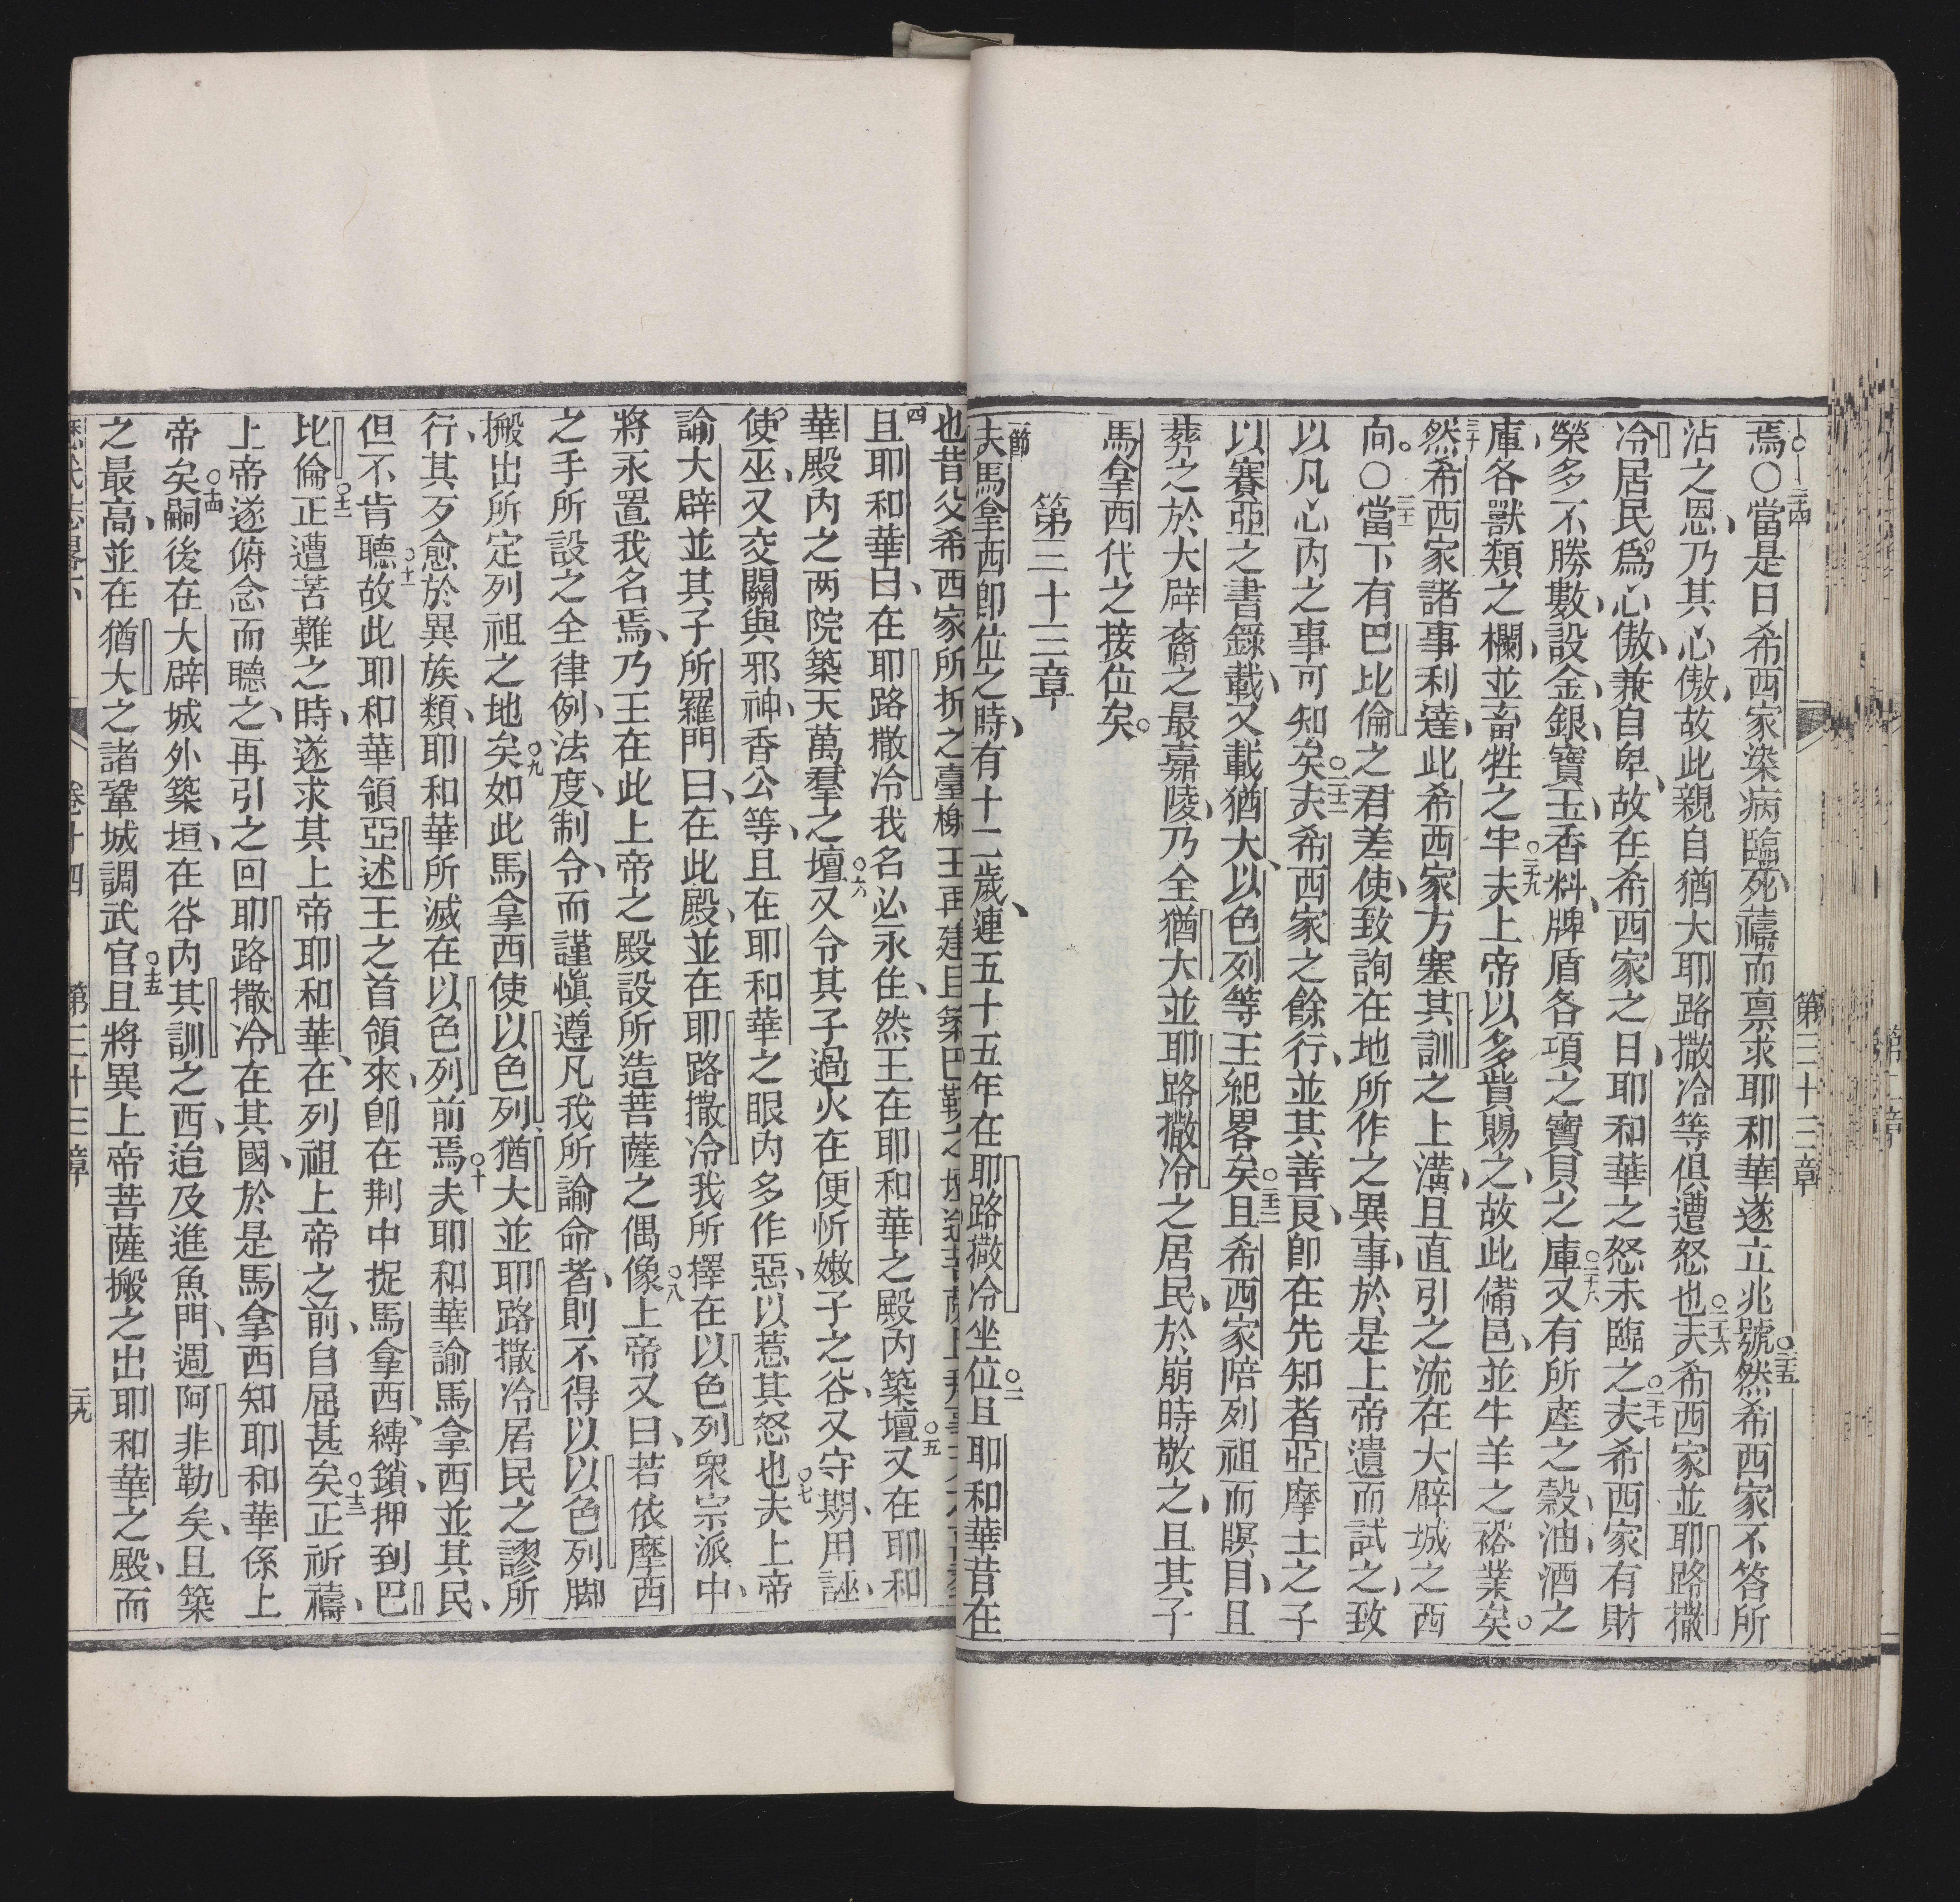 第三十三章
焉〇當是日希西家染病臨死禱而禀求耶和華遂立兆號然希西家不答所
沾之恩乃其心傲故此親自猶大耶路撒冷等俱遭怒也夫希西家並耶路撒
冷居民爲心傲兼自卑故在希西家之日耶和華之怒未臨之夫希西家有財
榮多不勝數設金銀寶玉香料牌盾各項之寶貝之庫又有所產之穀油酒之
庫各獸類之欄並畜牲之牢夫上帝以多貲賜之故此備邑並牛羊之裕業矣
然希西家諸事利達此希西家方塞其訓之上溝且直引之流在大辟城之西
向〇當下有巴比倫之君差使致詢在地所作之異事於是上帝遺而試之致
以凡心內之事可知矣夫希西家之餘行並其善良卽在先知者亞摩士之子
以賽亞之書錄載又載猶大以色列等王紀畧矣且希西家陪列祖而瞑目且
葬之於大辟裔之最嘉陵乃全猶大並耶路撒冷之居民於崩時敬之且其子
馬拿西代之接位矣
第三十三章
夫馬拿西卽位之時有十二歲連五十五年在耶路撒冷坐位且耶和華昔在
也昔父希西家所折之臺榭王再建且築巴勒之壇
且耶和華曰在耶路撒冷我名必永住然王在耶和華之殿內築壇又在耶和
華殿內之两院築天萬羣之壇又令其子過火在便忻嫩子之谷又守期用誣
使巫又交關與邪神香公等且在耶和華之眼內多作惡以惹其怒也夫上帝
諭大辟並其子所羅門曰在此殿並在耶路撒冷我所擇在以色列衆宗派中
將永置我名焉乃王在此上帝之殿設所造菩薩之偶像上帝又曰若依摩西
之手所設之全律例法度制令而謹愼遵凡我所諭命者則不得以以色列脚
搬出所定列祖之地矣如此馬拿西使以色列猶大並耶路撒冷居民之謬所
行其歹愈於異族類耶和華所滅在以色列前焉夫耶和華諭馬拿西並其民
但不肯聽故此耶和華領亞述王之首領來卽在荆中捉馬拿西縛鎖押到巴
比倫正遭苦難之時遂求其上帝耶和華在列祖上帝之前自屈甚矣正祈禱
上帝遂俯念而聽之再引之回耶路撒冷在其國於是馬拿西知耶和華係上
帝矣嗣後在大辟城外築垣在谷內其訓之西迨及進魚門週阿非勒矣且築
之最高並在猶大之諸鞏城調武官且將異上帝菩薩搬之出耶和華之殿而
卷十四 第三十三章 三九